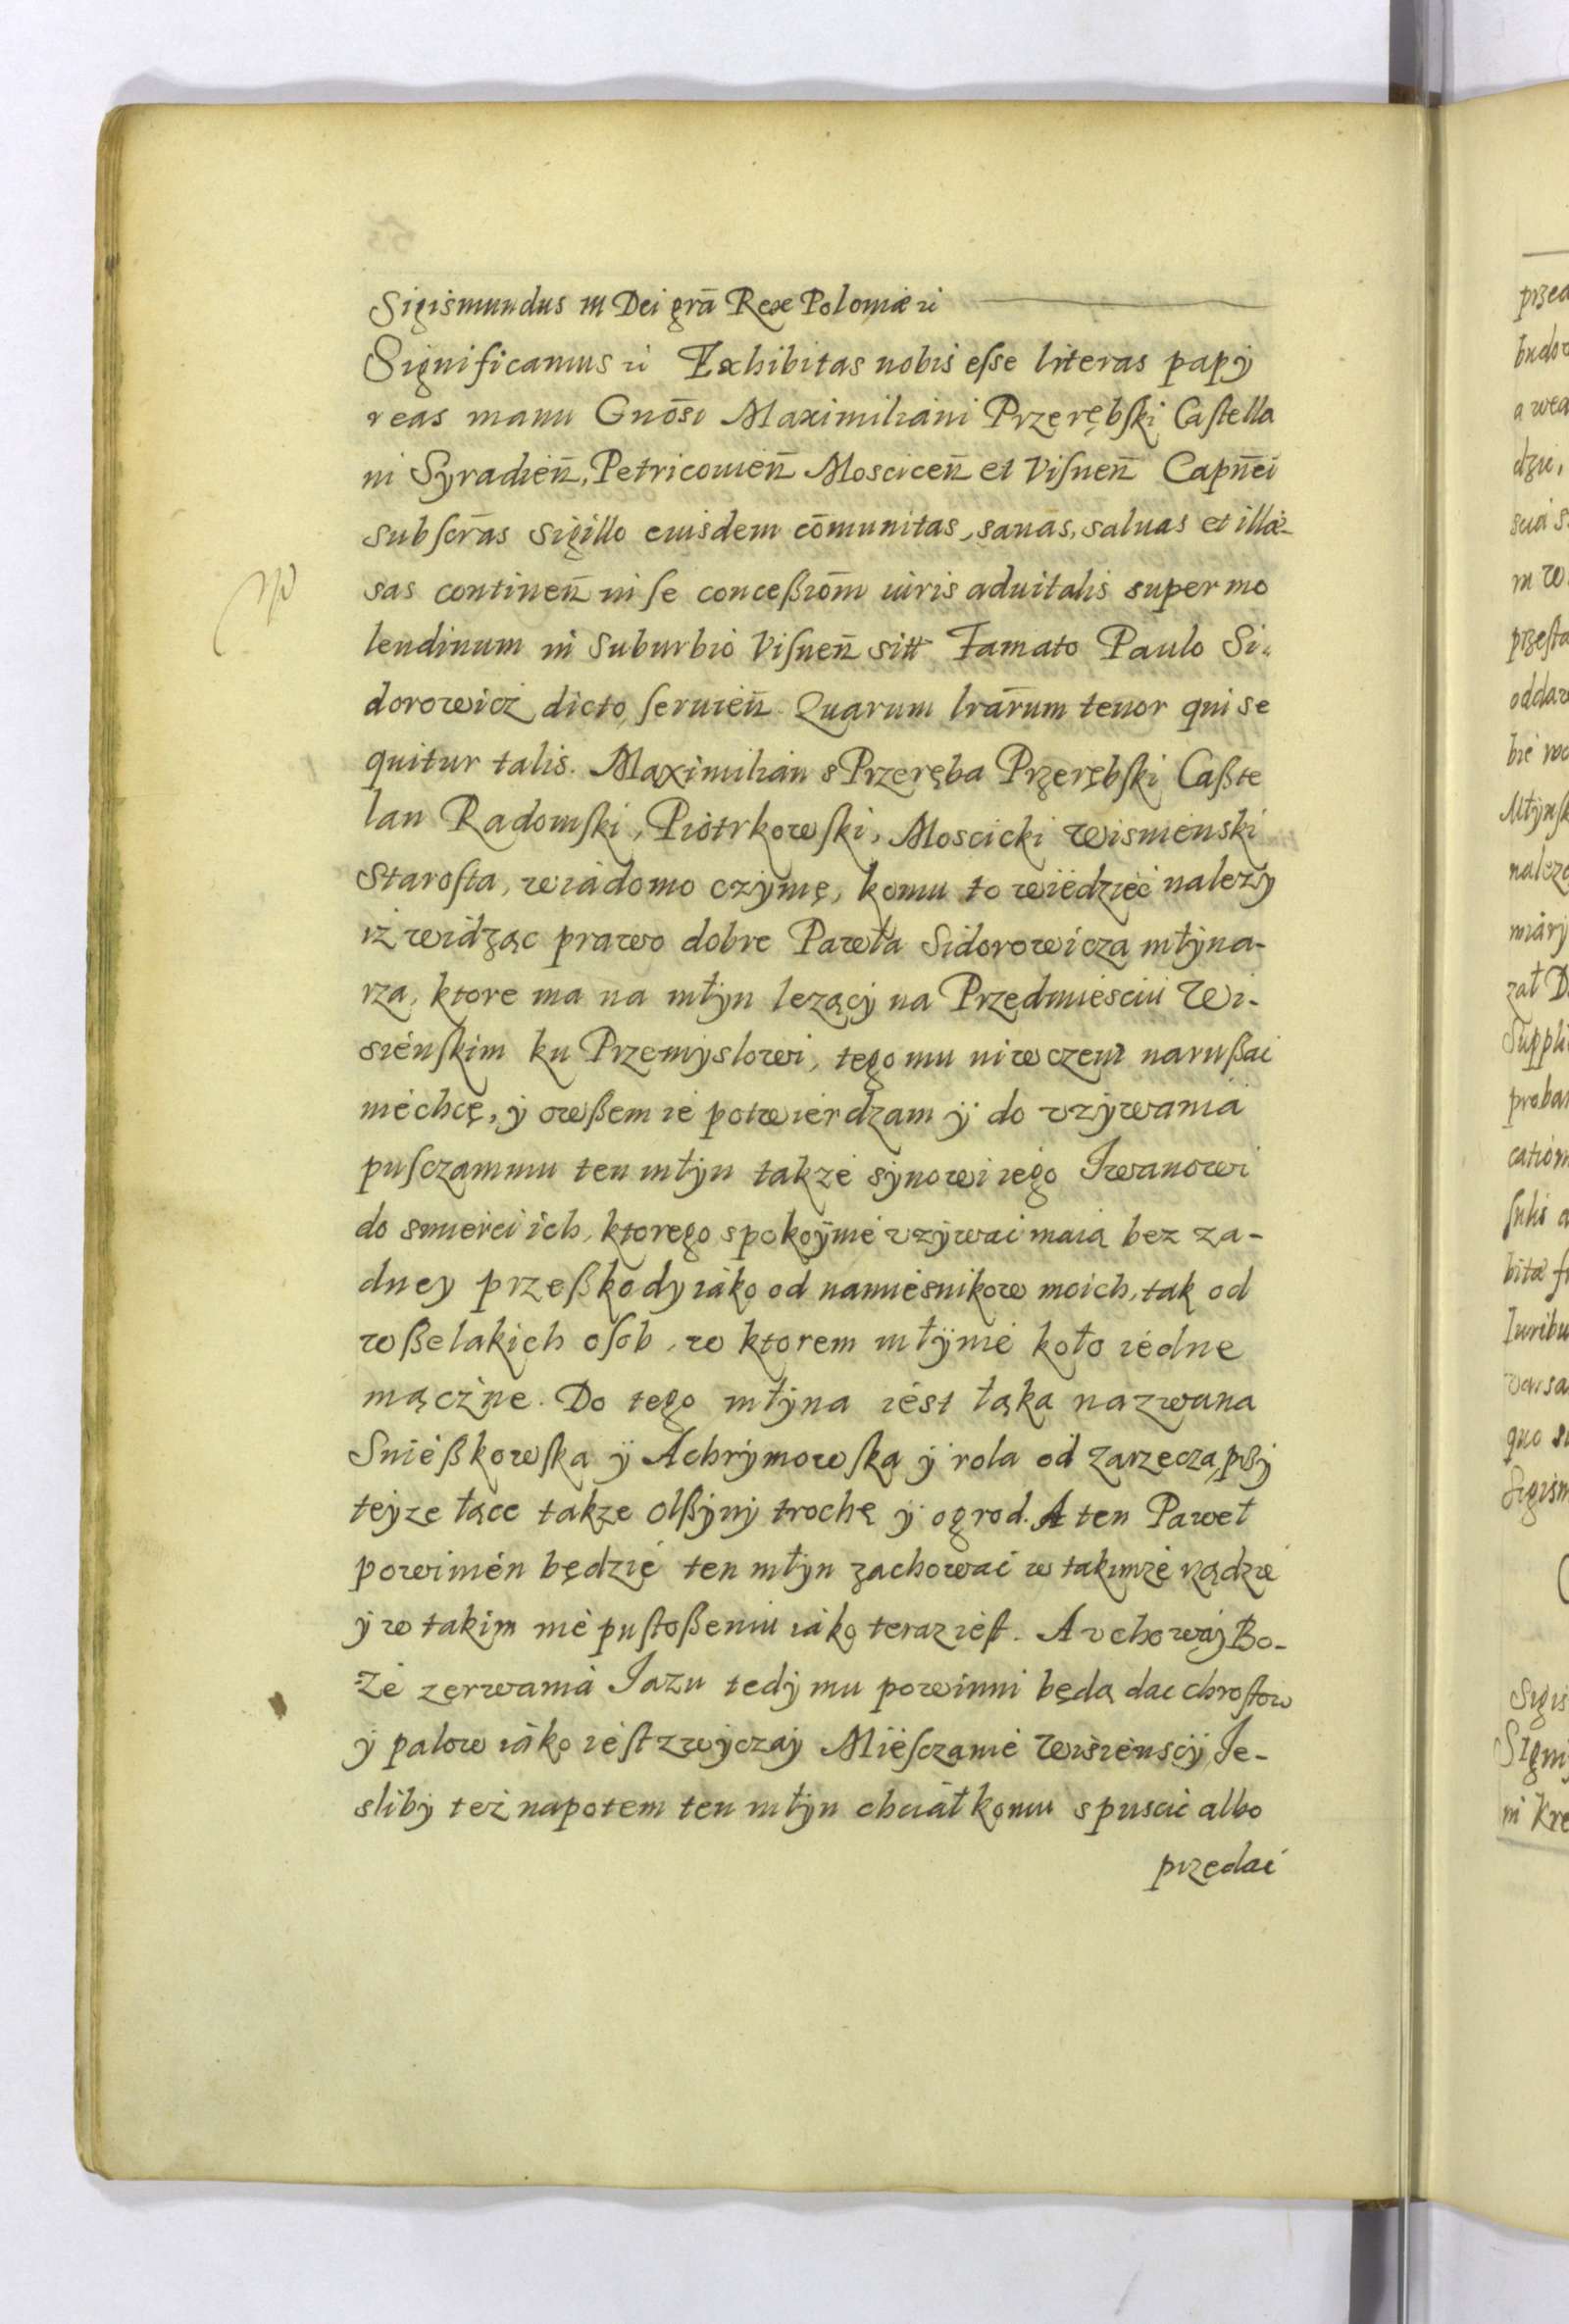 Sigismundus III Dei grā Rex Poloniæ rc
Significamus rc Exhibitas nobis eſse literas papÿ
reas manu Gnōsi Maximiliani Przerębſki Caſtella
ni Syradien̄, Petricouien̄ Moscicen̄ et Viſnen̄ Capn̄ei
subſcrās sigillo eiusdem cōmunitas, sanas, saluas et illæ-
sas continen̄ in ſe conceßiōm iuris aduitalis super mo
lendinum in suburbio Viſnen̄ sitt Famato Paulo Si-
dorowicz dicto ſeruien̄ Quarum lrārum tenor qui se
quitur talis. Maximilian s Przeręba Przerębſki Caßte
lan Radomſki, Piotrkowſki, Moscicki Wisnienski
Staroſta, wiadomo czÿnię, komu to wiedzieć należÿ
iż widząc prawo dobre Pawła Sidorowicza młÿna-
rza, ktore ma na młÿn lezącÿ na Przedmiesciu Wi-
sienſkim ku Przemÿslowi, tego mu niwczem narußać
niechcę, ÿ owßem ie potwierdzam ÿ do vzÿwania
puſczammu ten młÿn także sÿnowi iego Iwanowi
do smierci ich, ktorego spokoÿnie vzÿwać maią bez za-
dney przeßkody iako od namiesnikow moich, tak od
wßelakich oſob, w ktorem młÿnie koło iedne
mączne. Do tego młÿna iest łąka nazwana
Snießkowſka ÿ Achrÿmowſka ÿ rola od zarzecza, przÿ
teÿze łące takze olßÿnÿ trochę ÿ ogrod. A ten Paweł
powinien będzie ten młÿn zachować w takimże rządzie
ÿ w takim nie puſtoßeniu iako teraz ieſt. A vchowaÿ Bo-
że zerwania Iazu tedÿ mu powinni będą dac chroſtow
ÿ palow iako ieſt zwÿczaÿ Mieſczanie Wisienscÿ, Ie-
slibÿ też napotem ten młÿn chciał komu spuscić albo
przedać